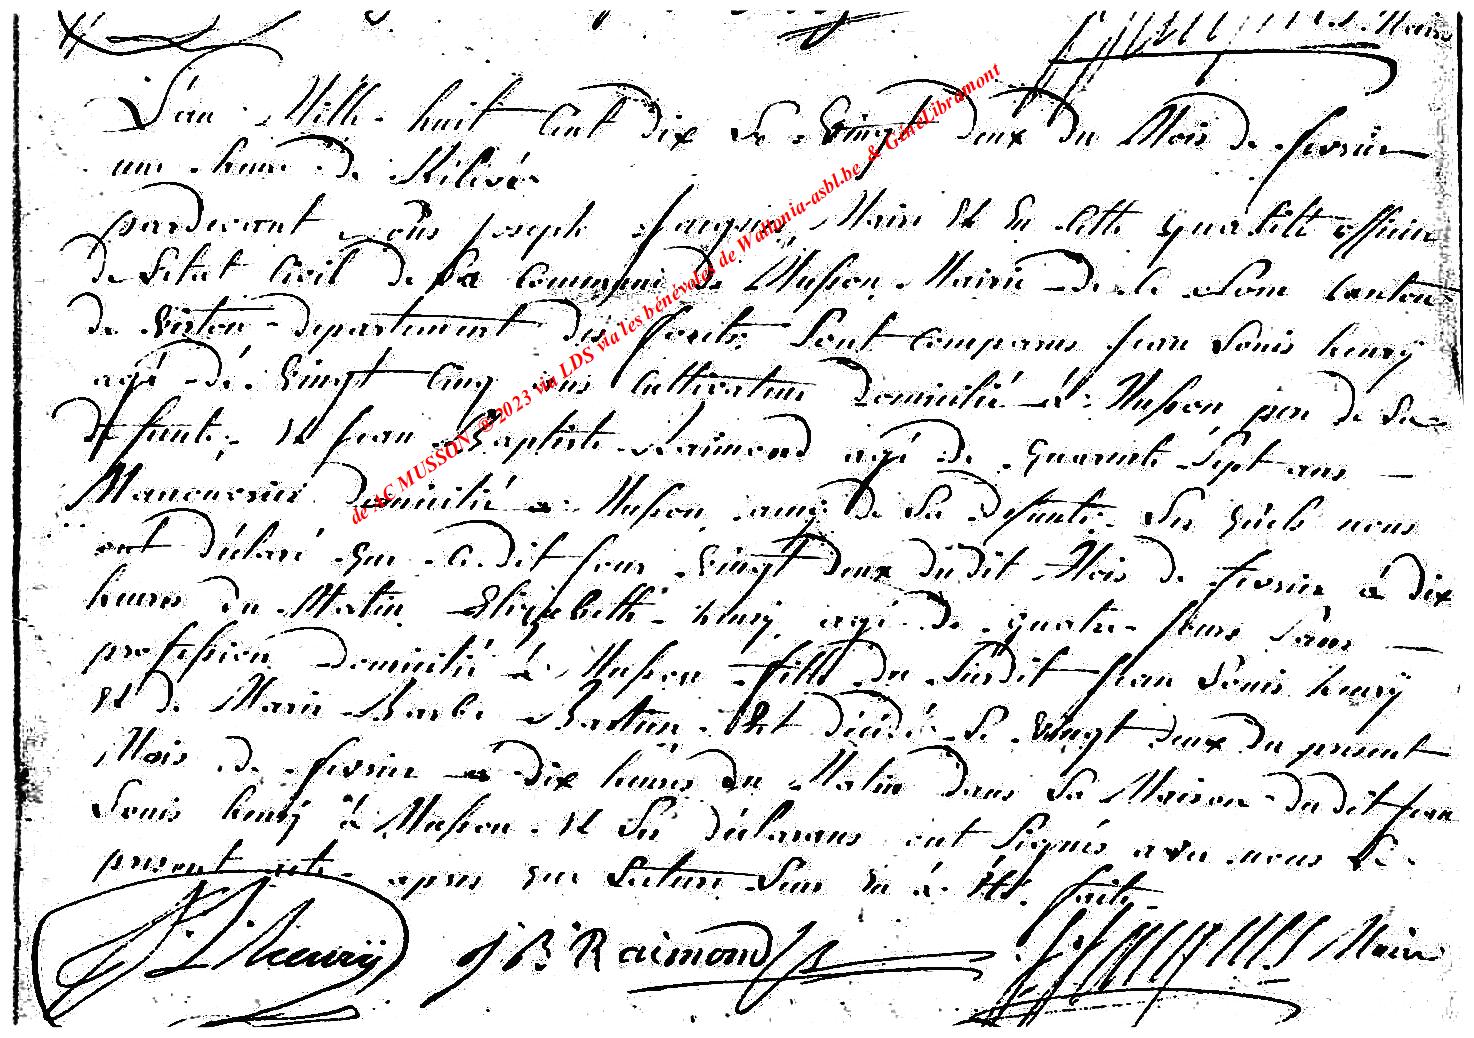 Maire
L'an Mille huit Cent dix Le Vingt deux du Mois de fevrier
une heure de Rélévé
pardevant Nous joseph Maire Et En Cette Qualité officier
de Letat Civil de La Commune de Musson Mairie de le dome Canton
de Virton departement des forets Sont Comparus jean Louis henrÿ
agé de Vingt Cinq ans Cultivateur Domicilié à Musson pere de La
defunte Et jean Baptiste Raimond agé de Quarente Sept ans —
Manouvrier Domicilié a Musson amis de La defunte Les Quels nous
ont déclaré Que Cedit jour Vingt deux dudit Mois de fevrier à dix
heures du Matin Elizabethe henrÿ agé de quatre jours Sans —
profession domicilié à Musson fille du Susdit jean Louis henrÿ
Et de Marie Barbe Est décédé Le Vingt deux du present
Mois de fevrier a dix heures du Matin dans La Maison dudit jean
Louis henrÿ à Musson Et Les déclarans ont Signés avec nous Le
present acte apres Que Lecture Leur En à Et. faite
J. L. henrÿ J B Raimond Maire
de AC MUSSON, ©2023 via LDS via les bénévoles de Wallonia-asbl.be & GenéLibramont